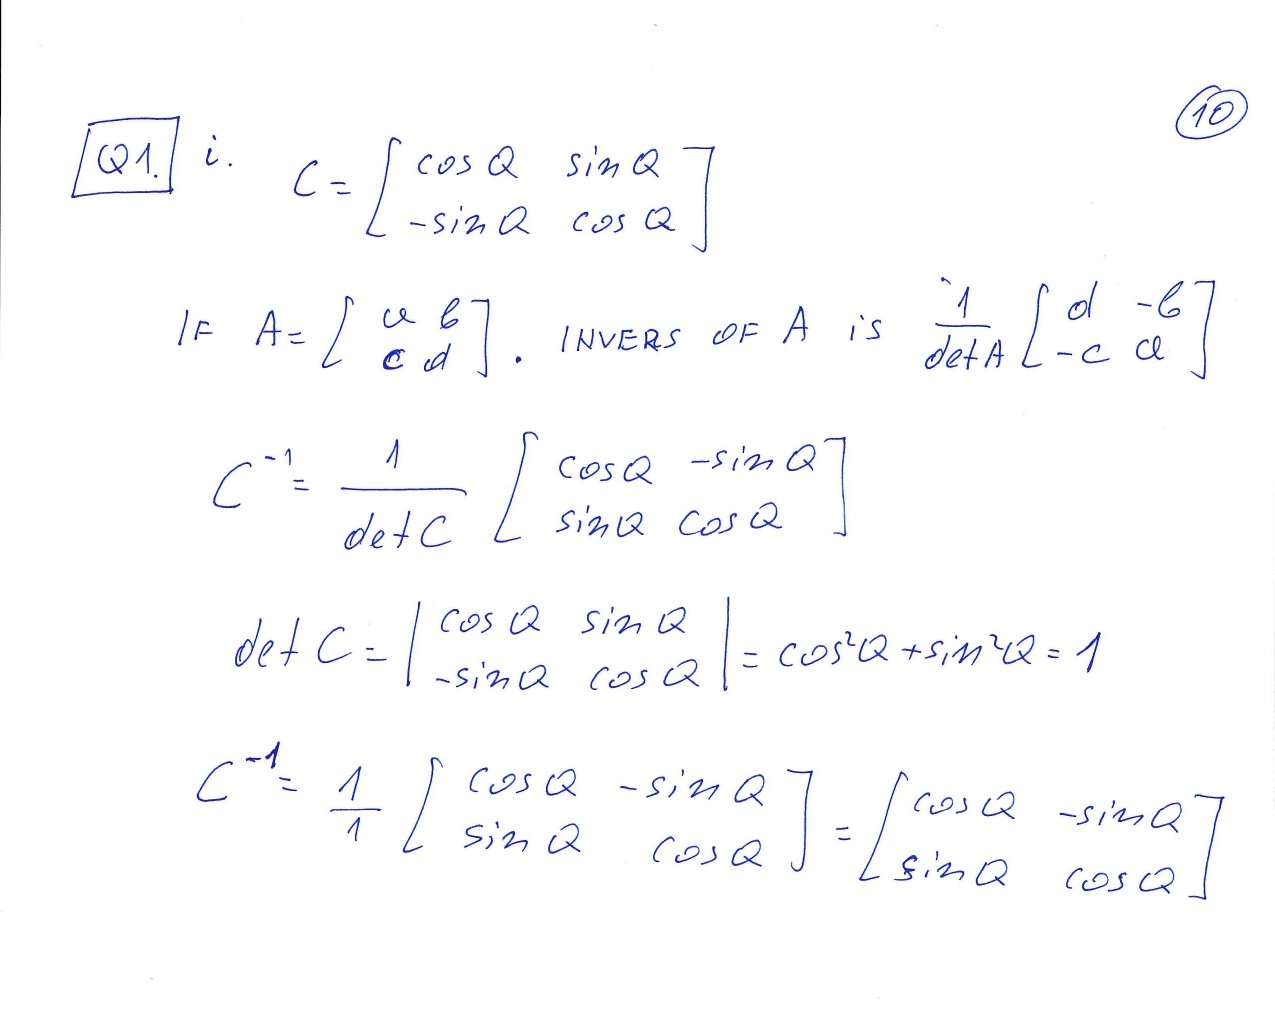 10
Q1. i. C = [ cos Q sin Q
-sin Q cos Q ]
IF A = [ a b
c d ]. INVERS OF A is 1/detA [ d -b
-c a ]
C⁻¹ = 1/det C [ cos Q -sin Q
sin Q cos Q ]
det C = | cos Q sin Q
-sin Q cos Q | = cos²Q + sin²Q = 1
C⁻¹ = 1/1 [ cos Q -sin Q
sin Q cos Q ] = [ cos Q -sin Q
sin Q cos Q ]